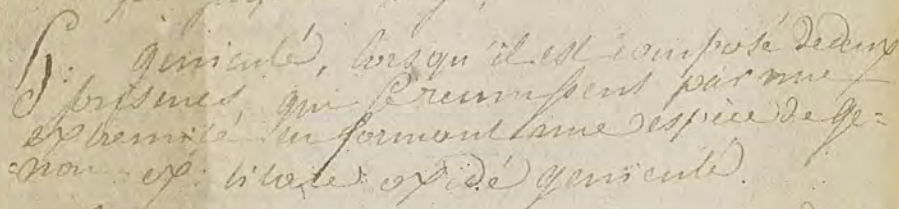 G: géniculé, lorsqu'il est composé de deux
prismes qui se reunissent par une
extremité en formant une espèce de ge=
=nou ex: titane oxidé geniculé.